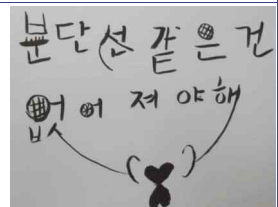 분단선 같은 건
없어져야해